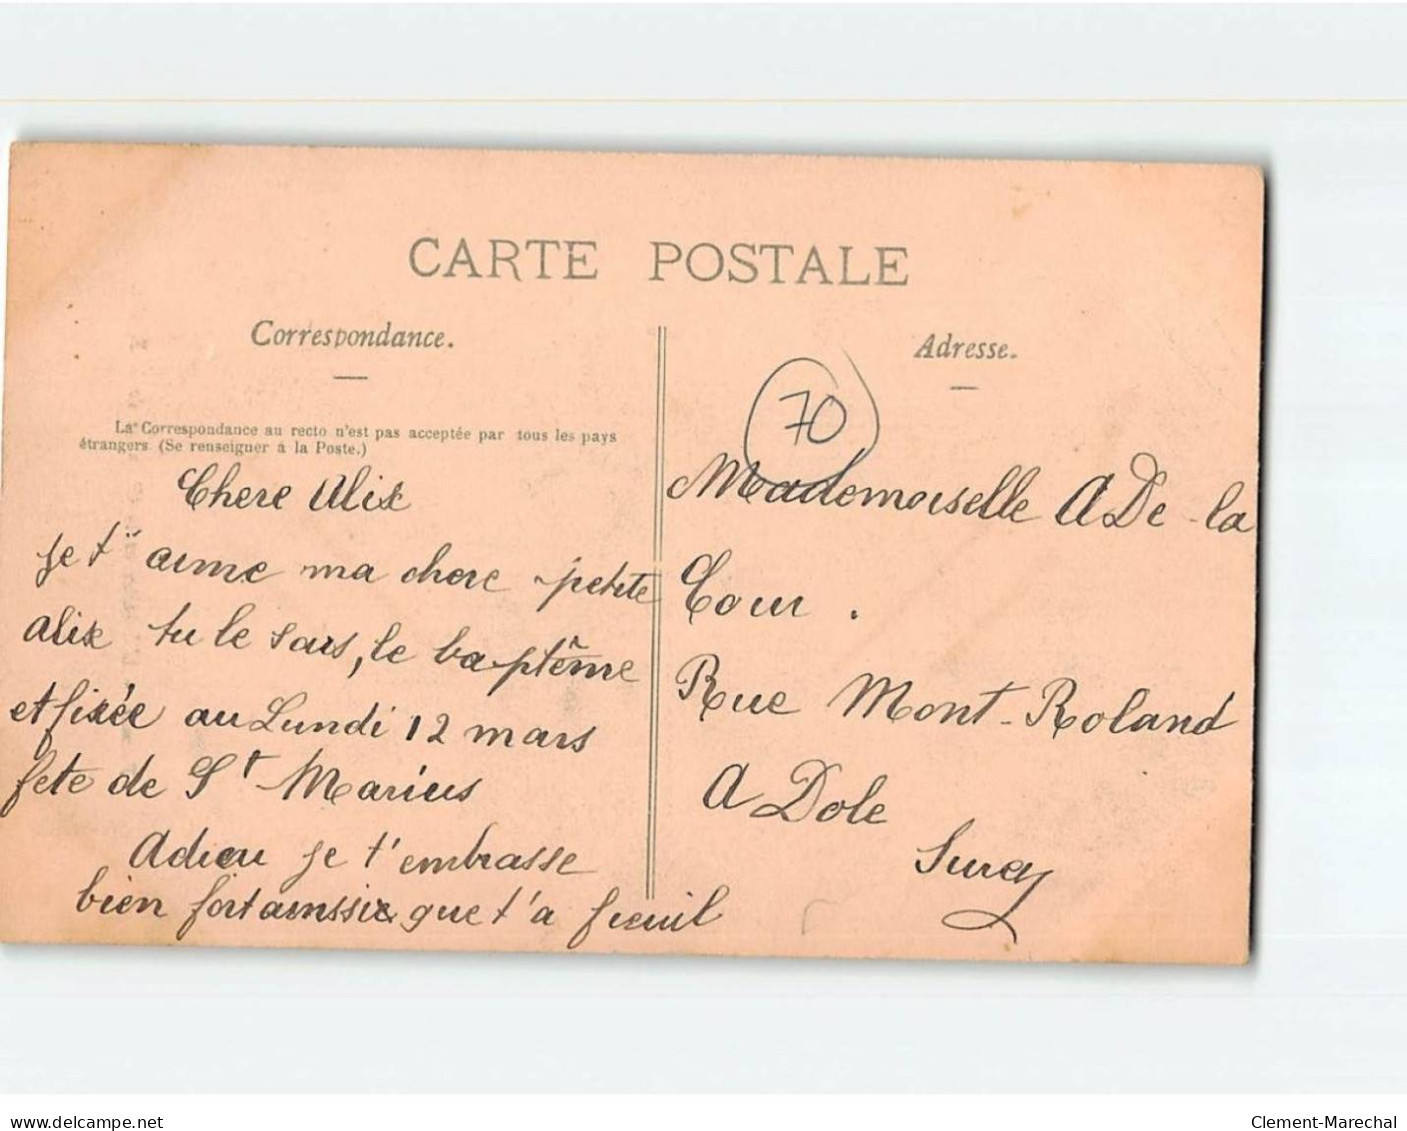 CARTE POSTALE
Correspondance.
La Correspondance au recto n'est pas acceptée par tous les pays
étrangers (Se renseigner à la Poste.)
Chere Alix
je t'aime ma chere petite
alix tu le sais, le baptême
et fixée au Lundi 12 mars
fete de St Marius
Adieu je t'embrasse
bien fort ainssie que t'a
Adresse.
70
Mademoiselle A De la
Tour.
Rue Mont-Roland
A Dole
Jura
www.delcampe.net
Clement-Marechal